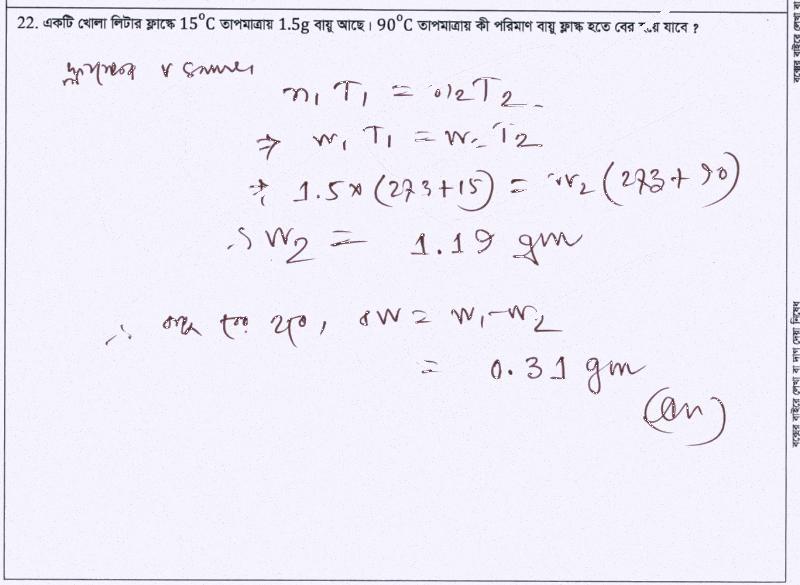 22. একটি খোলা লিটার ফ্লাস্কে 15°C তাপমাত্রায় 1.5g বায়ু আছে। 90°C তাপমাত্রায় কী পরিমাণ বায়ু ফ্লাস্ক হতে বের যাবে ?
n₁ T₁ = n₂ T₂
⇒ w₁ T₁ = w₂ T₂
⇒ 1.5 × (273+15) = w₂ (273+90)
∴ w₂ = 1.19 gm
∴ বের হয়ে যাবে, ΔW = W₁-W₂
= 0.31 gm
(Ans)
বক্সের বাইরে লেখা বা দাগ দেয়া নিষেধ